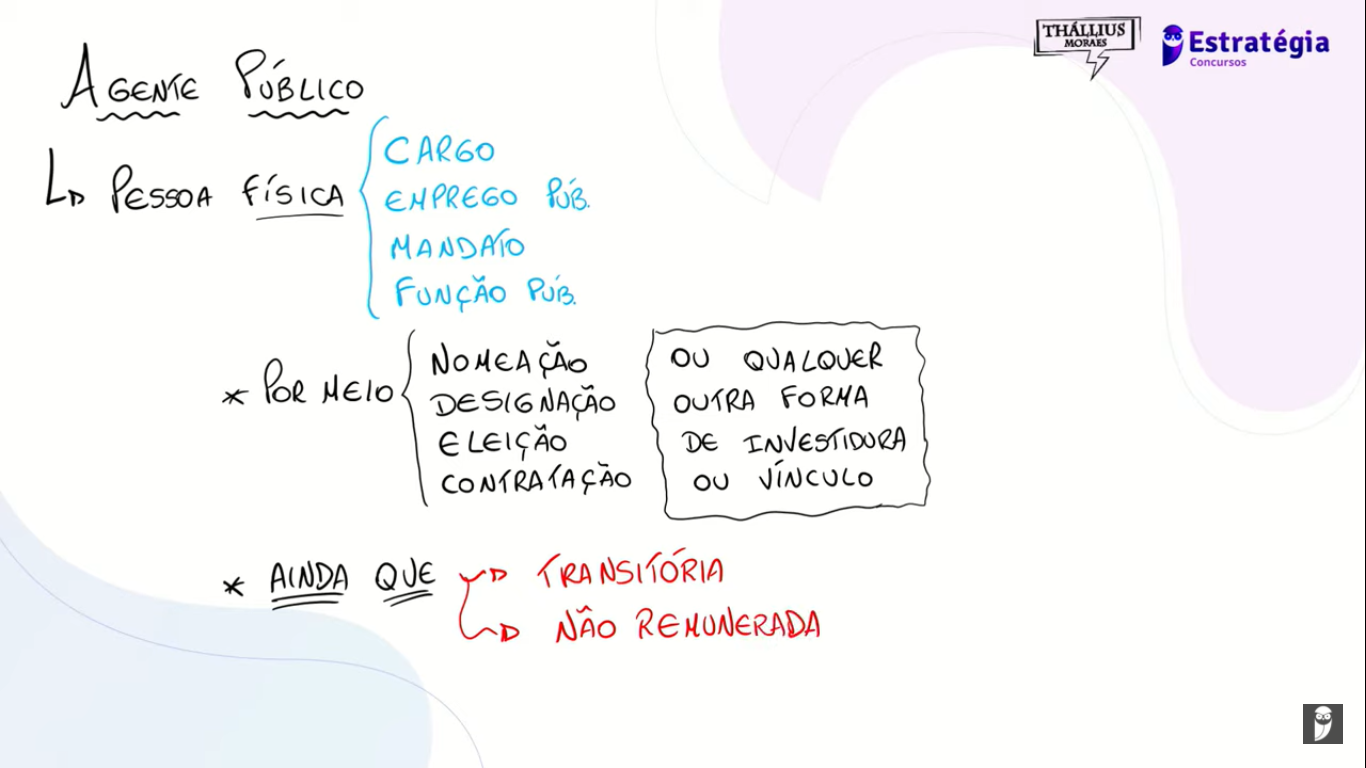 THÁLLIUS
MORAES
Estratégia
Concursos
AGENTE PÚBLICO
PESSOA FÍSICA
CARGO
EMPREGO PÚB.
MANDATO
FUNÇÃO PÚB.
* POR MEIO
NOMEAÇÃO
DESIGNAÇÃO
ELEIÇÃO
CONTRATAÇÃO
OU QUALQUER
OUTRA FORMA
DE INVESTIDURA
OU VÍNCULO
* AINDA QUE
TRANSITÓRIA
NÃO REMUNERADA